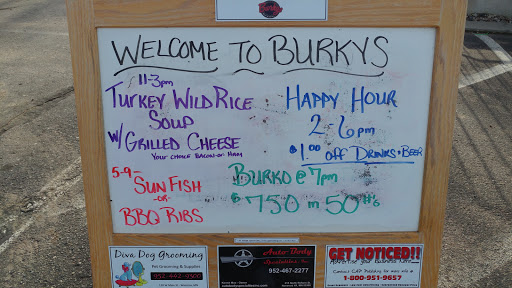 Burkys
WELCOME TO BURKYS
11-3pm
TURKEY WILD RICE
SOUP
W/ GRILLED CHEESE
YOUR CHOICE BACON OR HAM
5-9-
SUNFISH
-OR-
BBQ RIBS
HAPPY HOUR
2-6pm
$1.00 OFF DRINKS + BEER
BURKO @ 7pm
$750 in 50 #'s
Diva Dog Grooming
Pet Grooming & Supplies
952-442-
Auto Body
952-467-2277
GET NOTICED!!
Advertise your business here
Contact GAP Publishing for more info at
1-800-951-9657